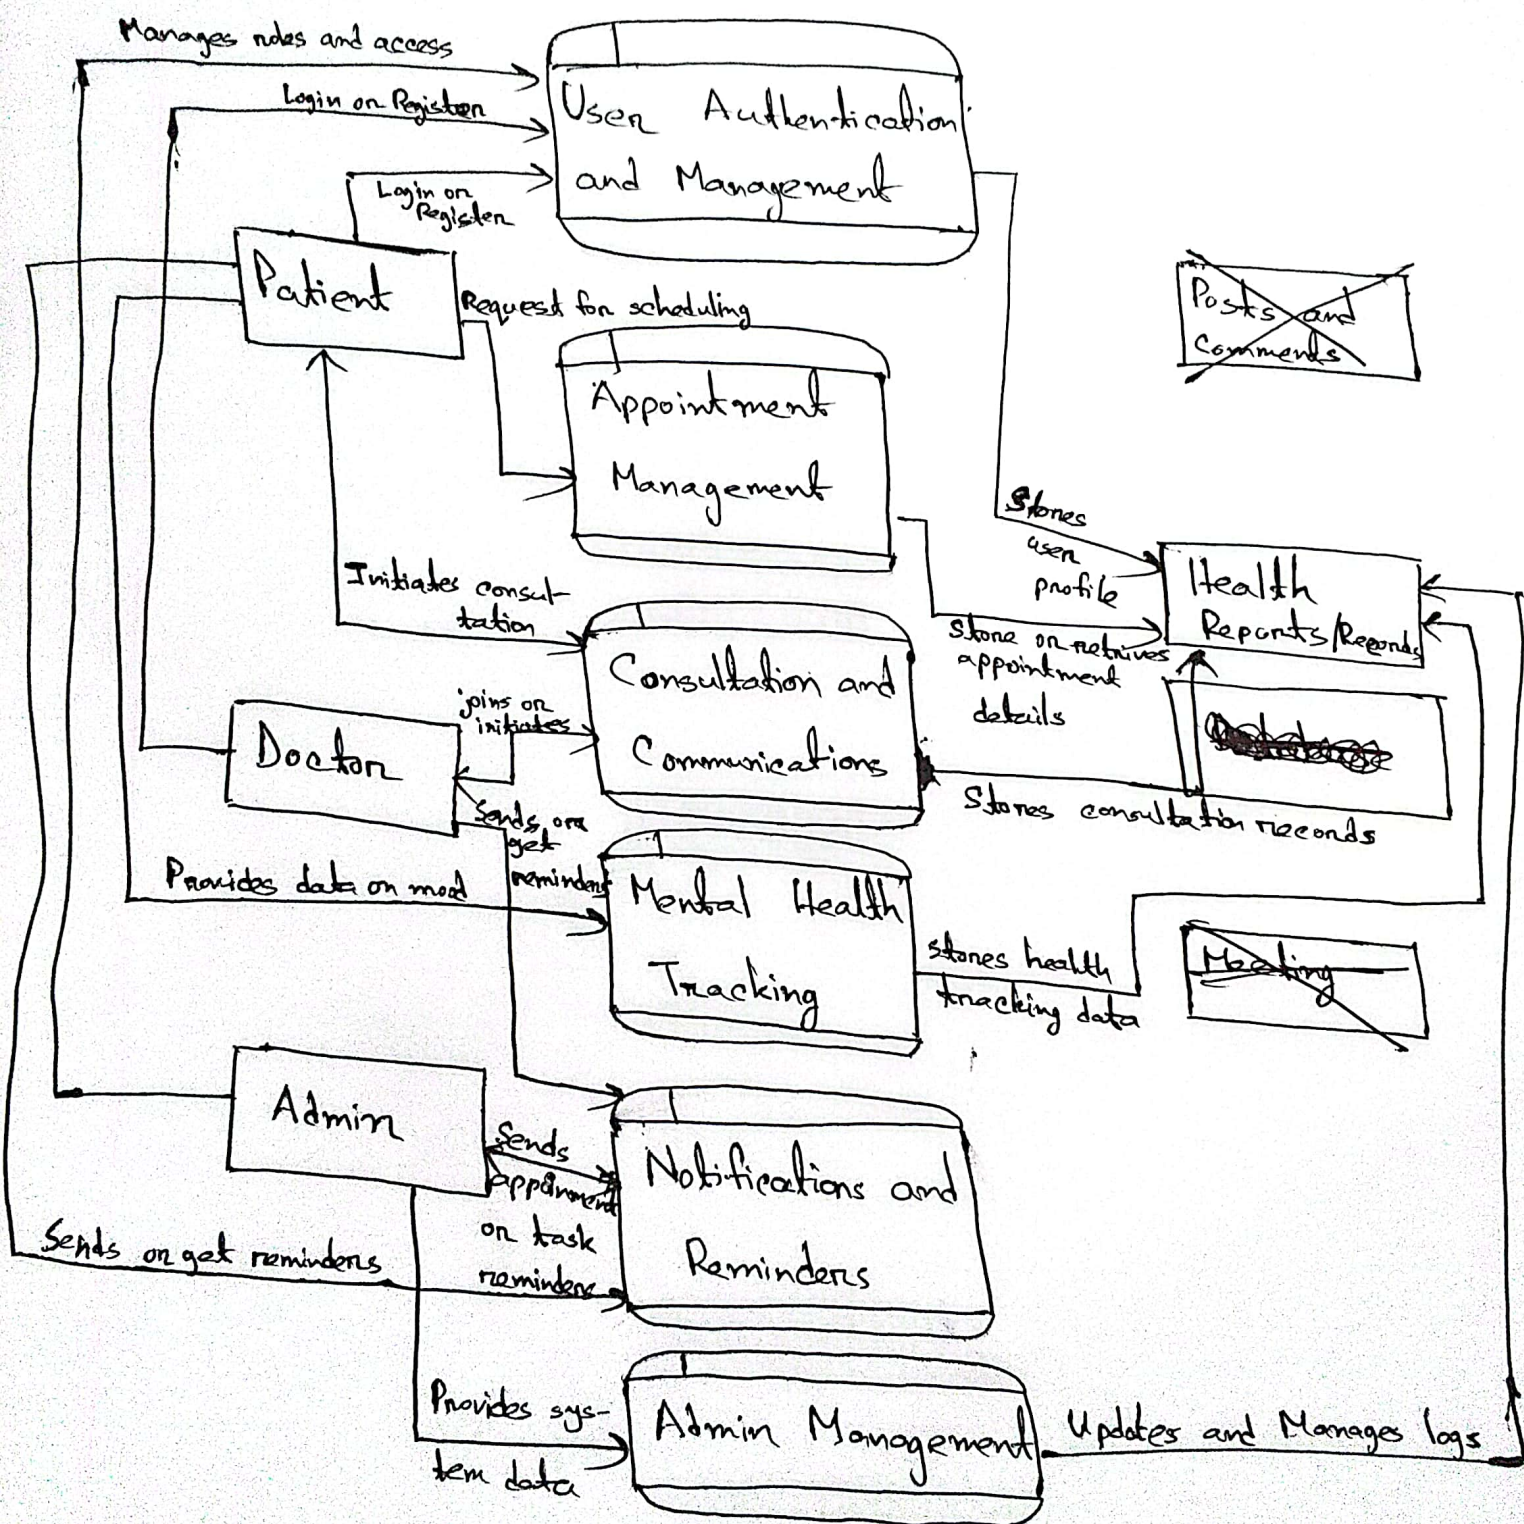 Manages roles and access
Login or Register
User Authentication
and Management
Login or
Register
Patient
Request for scheduling
Posts and
Commends
Appointment
Management
Stores
user
profile
Health
Reports/Records
Initiates consul-
tation
Store or retrives
appointment
details
Consultation and
Communications
joins or
initiates
Doctor
Stores consultation records
Sends or
get
reminders
Provides data on mood
Mental Health
Tracking
stores health
tracking data
Meeting
Admin
Sends
appoinment
or task
reminders
Notifications and
Reminders
Sends or get reminders
Provides sys-
tem data
Admin Management
Updates and Manages logs